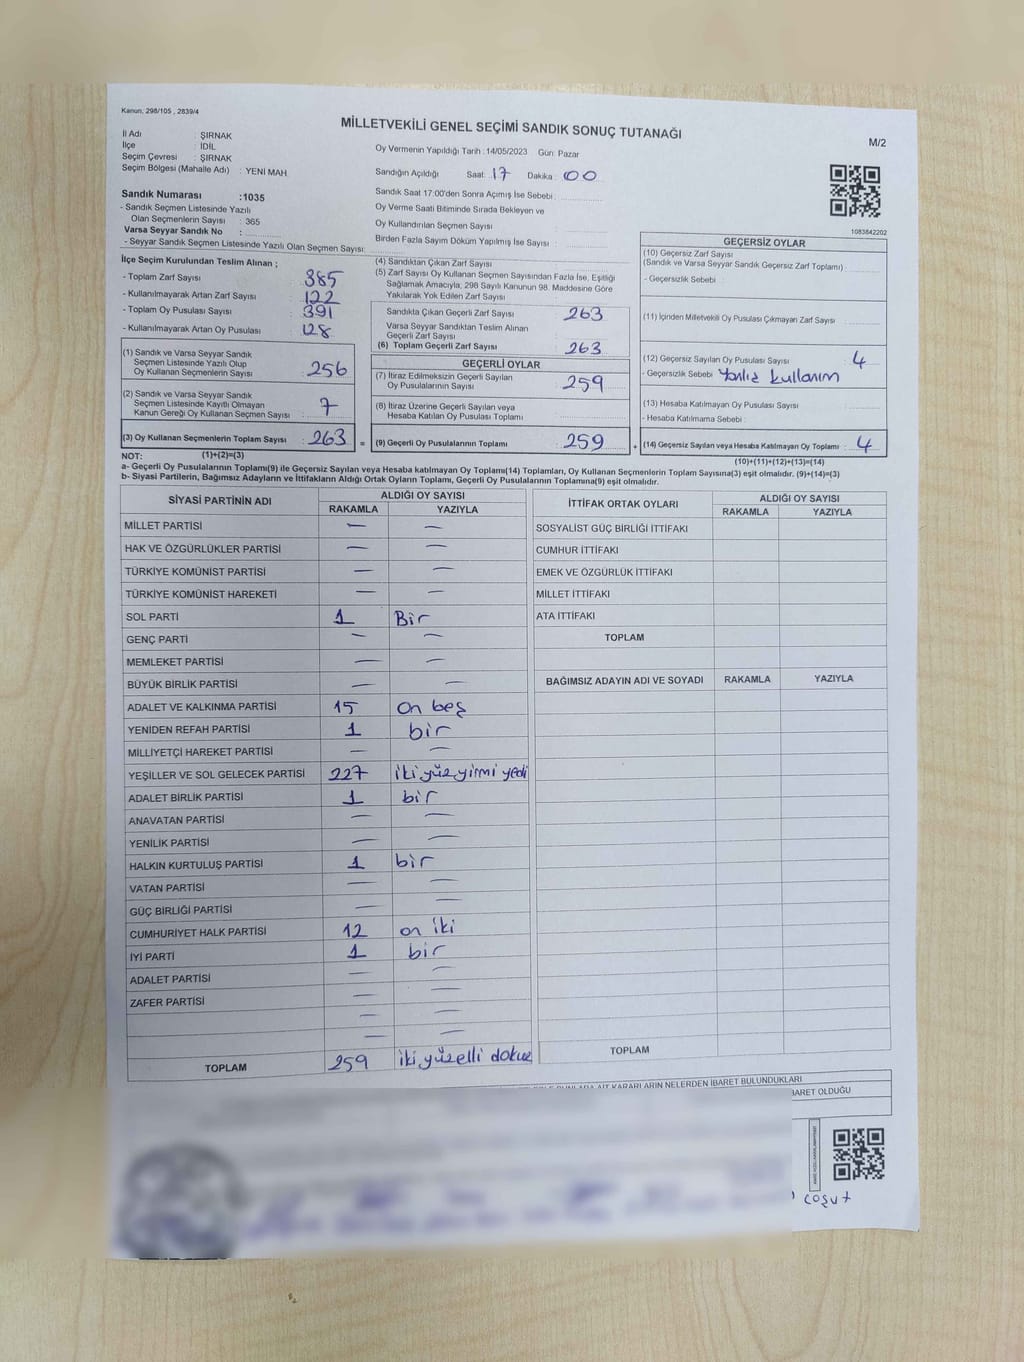 Kanun; 298/105 , 2839/4
MİLLETVEKİLİ GENEL SEÇİMİ SANDIK SONUÇ TUTANAĞI
M/2
İl Adı : ŞIRNAK
İlçe : İDİL
Seçim Çevresi : ŞIRNAK
Seçim Bölgesi (Mahalle Adı) : YENİ MAH.
Oy Vermenin Yapıldığı Tarih : 14/05/2023 Gün: Pazar
Sandığın Açıldığı Saat: 17 Dakika: 00
Sandık Saat 17:00'den Sonra Açımış İse Sebebi :
Oy Verme Saati Bitiminde Sırada Bekleyen ve
Oy Kullandırılan Seçmen Sayısı :
Birden Fazla Sayım Döküm Yapılmış İse Sayısı :
Sandık Numarası : 1035
- Sandık Seçmen Listesinde Yazılı
Olan Seçmenlerin Sayısı : 365
Varsa Seyyar Sandık No :
- Seyyar Sandık Seçmen Listesinde Yazılı Olan Seçmen Sayısı:
1083842202
İlçe Seçim Kurulundan Teslim Alınan ;
- Toplam Zarf Sayısı : 385
- Kullanılmayarak Artan Zarf Sayısı : 122
- Toplam Oy Pusulası Sayısı : 391
- Kullanılmayarak Artan Oy Pusulası : 128
(1) Sandık ve Varsa Seyyar Sandık
Seçmen Listesinde Yazılı Olup
Oy Kullanan Seçmenlerin Sayısı : 256
(2) Sandık ve Varsa Seyyar Sandık
Seçmen Listesinde Kayıtlı Olmayan
Kanun Gereği Oy Kullanan Seçmen Sayısı : 7
(3) Oy Kullanan Seçmenlerin Toplam Sayısı : 263 =
(4) Sandıktan Çıkan Zarf Sayısı :
(5) Zarf Sayısı Oy Kullanan Seçmen Sayısından Fazla İse, Eşitliği
Sağlamak Amacıyla, 298 Sayılı Kanunun 98. Maddesine Göre
Yakılarak Yok Edilen Zarf Sayısı :
Sandıkta Çıkan Geçerli Zarf Sayısı : 263
Varsa Seyyar Sandıktan Teslim Alınan
Geçerli Zarf Sayısı :
(6) Toplam Geçerli Zarf Sayısı : 263
GEÇERLİ OYLAR
(7) İtiraz Edilmeksizin Geçerli Sayılan
Oy Pusulalarının Sayısı : 259
(8) İtiraz Üzerine Geçerli Sayılan veya
Hesaba Katılan Oy Pusulası Toplamı :
(9) Geçerli Oy Pusulalarının Toplamı : 259 +
GEÇERSİZ OYLAR
(10) Geçersiz Zarf Sayısı
(Sandık ve Varsa Seyyar Sandık Geçersiz Zarf Toplamı) :
- Geçersizlik Sebebi :
(11) İçinden Milletvekili Oy Pusulası Çıkmayan Zarf Sayısı :
(12) Geçersiz Sayılan Oy Pusulası Sayısı : 4
- Geçersizlik Sebebi : Yanlış kullanım
(13) Hesaba Katılmayan Oy Pusulası Sayısı :
- Hesaba Katılmama Sebebi :
(14) Geçersiz Sayılan veya Hesaba Katılmayan Oy Toplamı : 4
NOT: (1)+(2)=(3) (10)+(11)+(12)+(13)=(14)
a- Geçerli Oy Pusulalarının Toplamı(9) ile Geçersiz Sayılan veya Hesaba katılmayan Oy Toplamı(14) Toplamları, Oy Kullanan Seçmenlerin Toplam Sayısına(3) eşit olmalıdır. (9)+(14)=(3)
b- Siyasi Partilerin, Bağımsız Adayların ve İttifakların Aldığı Ortak Oyların Toplamı, Geçerli Oy Pusulalarının Toplamına(9) eşit olmalıdır.
SİYASİ PARTİNİN ADI ALDIĞI OY SAYISI
RAKAMLA YAZIYLA
MİLLET PARTİSİ — —
HAK VE ÖZGÜRLÜKLER PARTİSİ — —
TÜRKİYE KOMÜNİST PARTİSİ — —
TÜRKİYE KOMÜNİST HAREKETİ — —
SOL PARTİ 1 Bir
GENÇ PARTİ — —
MEMLEKET PARTİSİ — —
BÜYÜK BİRLİK PARTİSİ — —
ADALET VE KALKINMA PARTİSİ 15 on beş
YENİDEN REFAH PARTİSİ 1 bir
MİLLİYETÇİ HAREKET PARTİSİ — —
YEŞİLLER VE SOL GELECEK PARTİSİ 227 iki yüz yirmi yedi
ADALET BİRLİK PARTİSİ 1 bir
ANAVATAN PARTİSİ — —
YENİLİK PARTİSİ — —
HALKIN KURTULUŞ PARTİSİ 1 bir
VATAN PARTİSİ — —
GÜÇ BİRLİĞİ PARTİSİ — —
CUMHURİYET HALK PARTİSİ 12 on iki
İYİ PARTİ 1 bir
ADALET PARTİSİ — —
ZAFER PARTİSİ — —
— —
— —
TOPLAM 259 iki yüz elli dokuz
İTTİFAK ORTAK OYLARI ALDIĞI OY SAYISI
RAKAMLA YAZIYLA
SOSYALİST GÜÇ BİRLİĞİ İTTİFAKI
CUMHUR İTTİFAKI
EMEK VE ÖZGÜRLÜK İTTİFAKI
MİLLET İTTİFAKI
ATA İTTİFAKI
TOPLAM
BAĞIMSIZ ADAYIN ADI VE SOYADI RAKAMLA YAZIYLA
TOPLAM
KARARLARIN NELERDEN İBARET BULUNDUKLARI
OLDUĞU
coşut